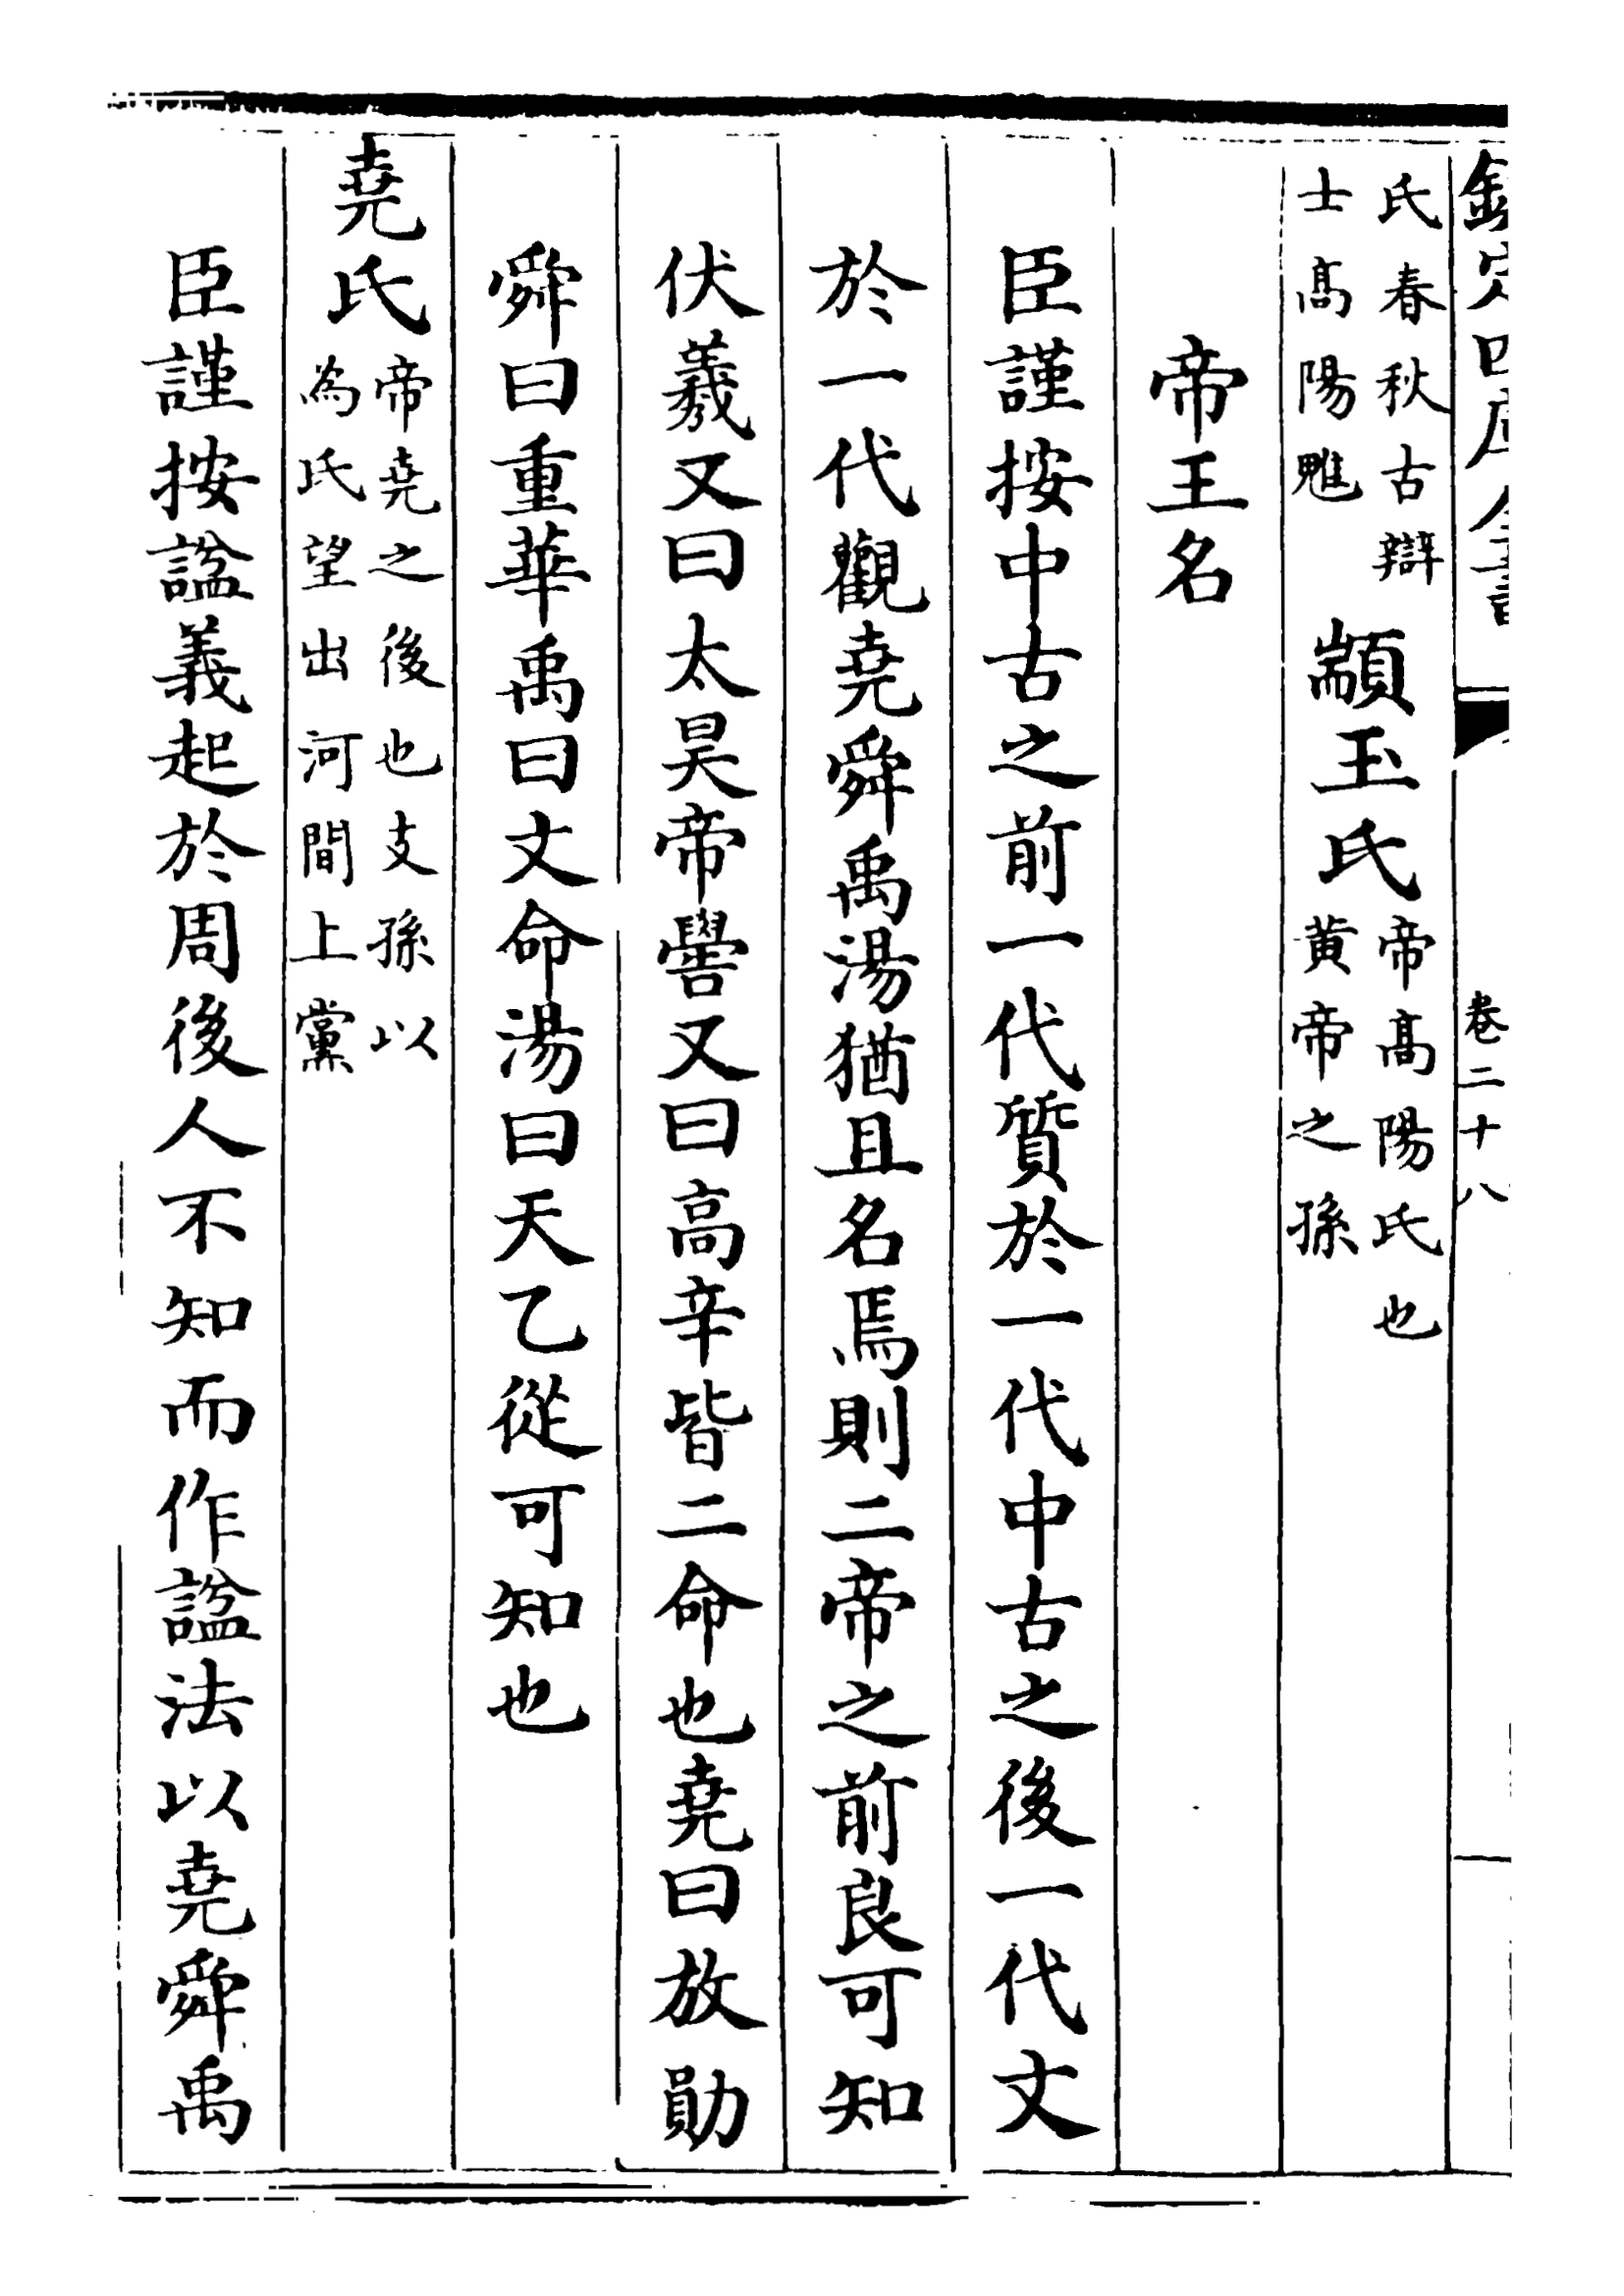 欽定四庫全書
卷二十八
氏春秋古辯
士高陽魋
顓玉氏
帝高陽氏也
黄帝之孫
帝王名
臣謹按中古之前一代質於一代中古之後一代文
於一代觀堯舜禹湯猶且名焉則二帝之前良可知
伏羲又曰太昊帝嚳又曰高辛皆二命也堯曰放勛
舜曰重華禹曰文命湯曰天乙從可知也
堯氏
帝堯之後也支孫以
為氏望出河間上黨
臣謹按諡義起於周後人不知而作諡法以堯舜禹